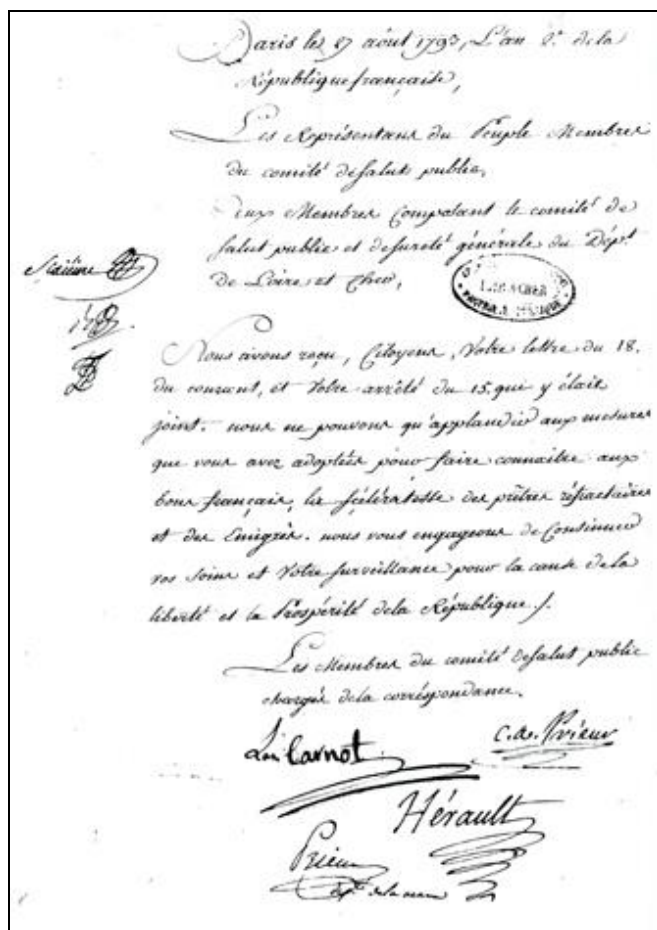 Paris le 27 août 1793, L'an 2.e de la
République française,
Les Représentans du Peuple Membres
du comité de Salut public,
aux Membres Composant le comité de
Salut public et de sureté générale du Dépt.
de Loire et Cher,
Nous avons reçu, Citoyens, Votre lettre du 18.
du courant, et Votre arrêté du 15. qui y était
joint. nous ne pouvons qu'applaudir aux mesures
que vous avez adoptées pour faire connaitre aux
bons français, la scélératesse des prêtres réfractaires
et des Emigrés. nous vous engageons de Continuer
vos soins et Votre surveillance pour la cause de la
liberté et la Prospérité de la République /.
Les Membres du comité de Salut public
chargés de la correspondance.
Carnot C.A. Prieur
Hérault
Prieur
de la marne